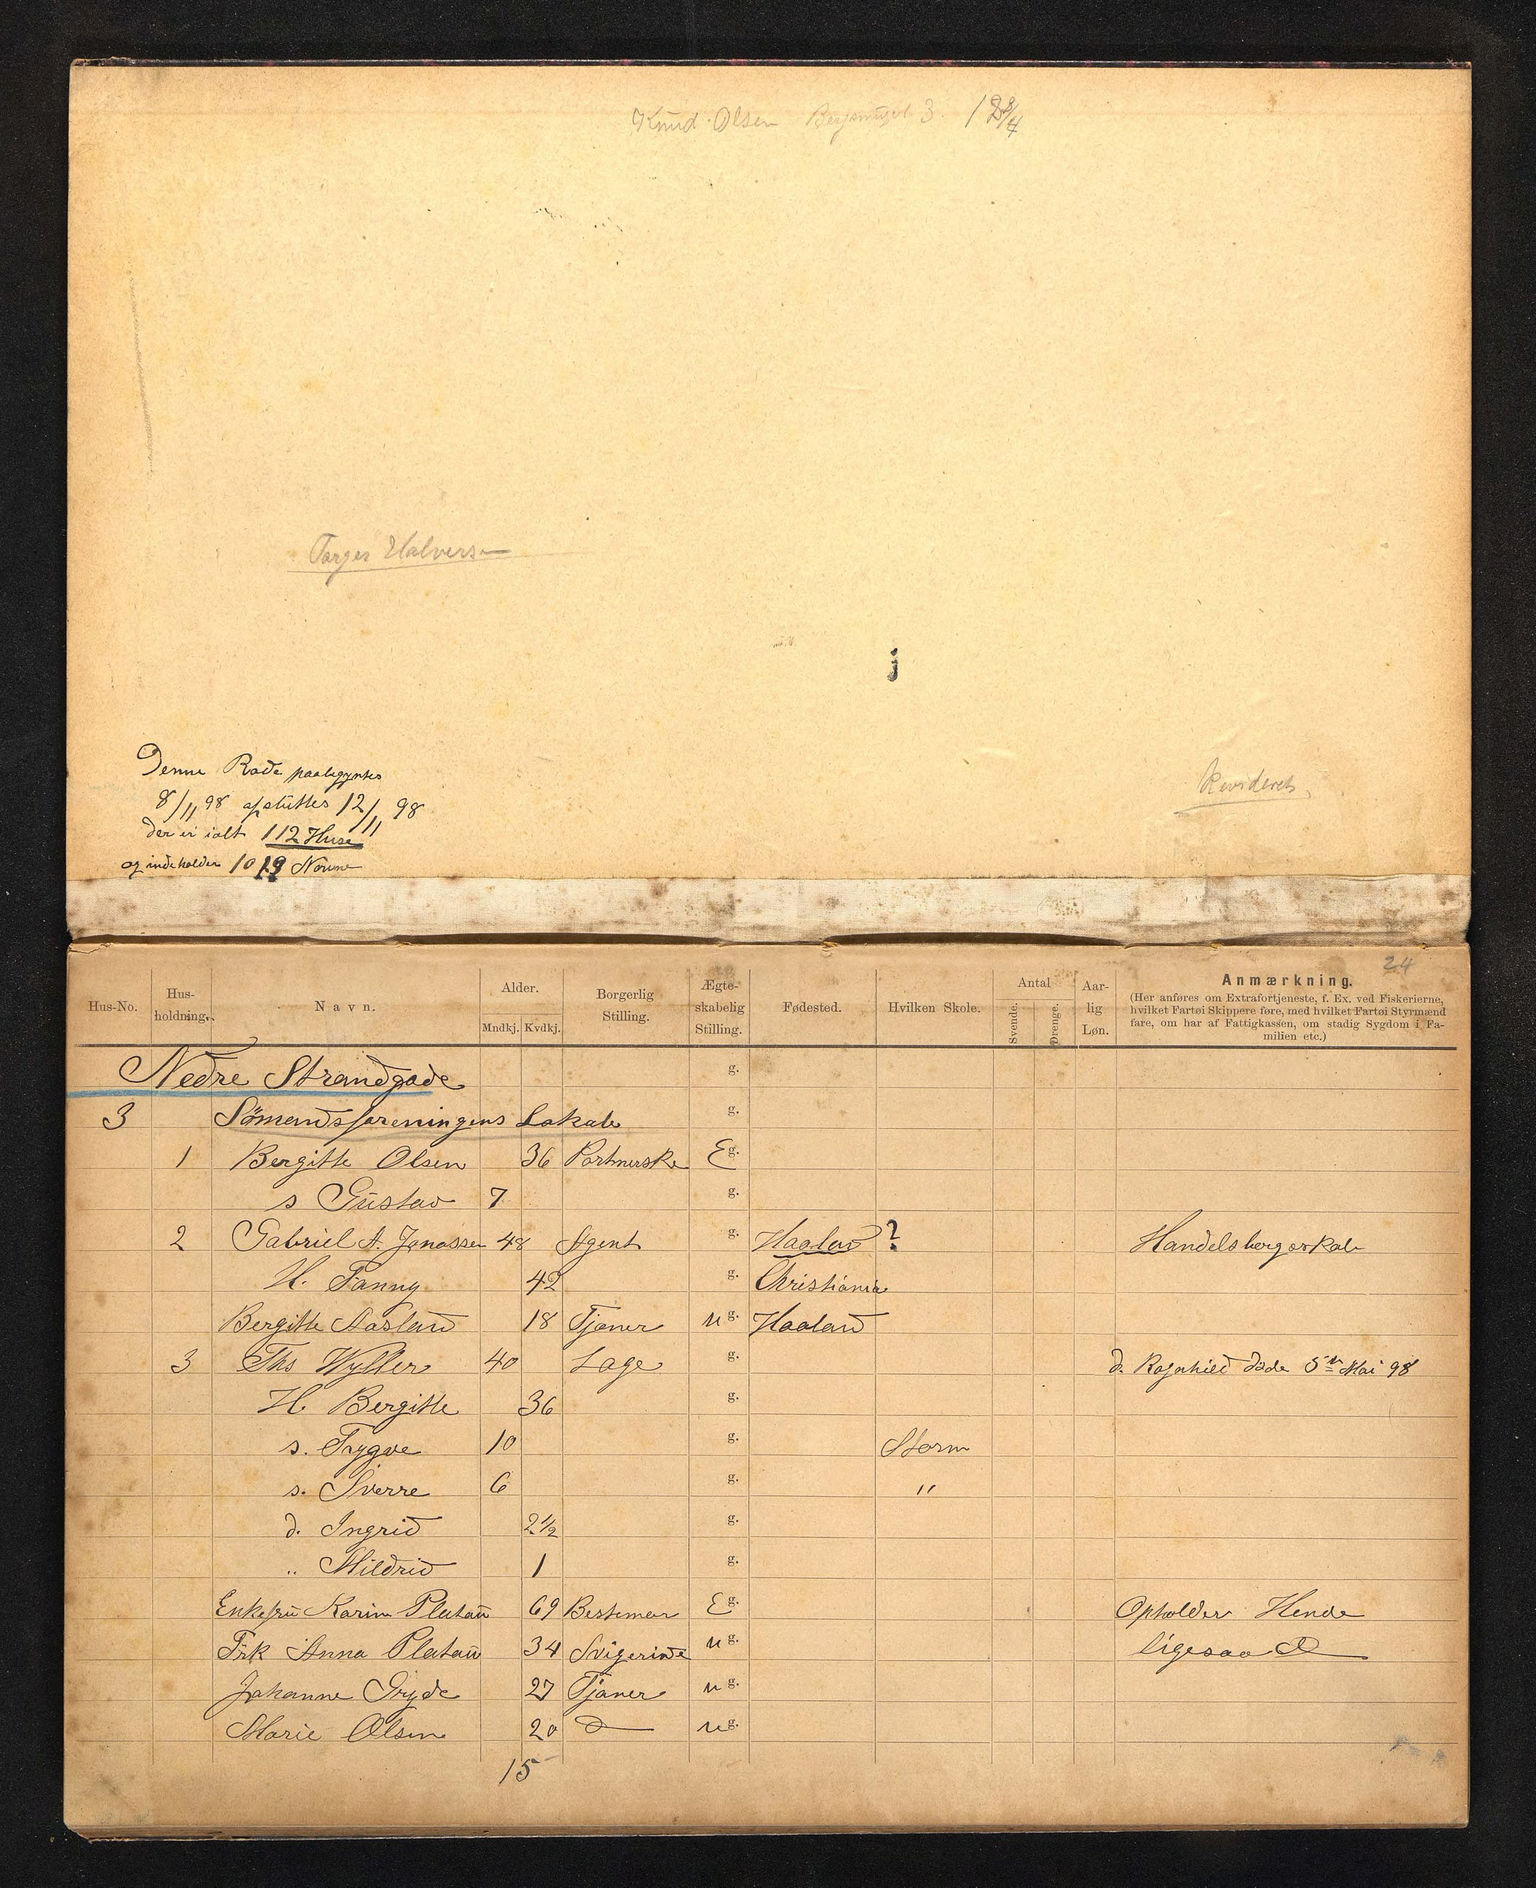 Knud Olsen Bergsmuget 3. 128/4
Torger Halvorsen
Denne Rode paabegyntes
8/11 98 afsluttes 12/11 98
der er ialt 112 Huse
og indeholder 1019 Navne
Revideret
24
Hus-No. Hus-holdning. Navn. Alder. Mndkj. Kvdkj. Borgerlig Stilling. Ægte-skabelig Stilling. Fødested. Hvilken Skole. Antal Svende. Drenge. Aar-lig Løn. Anmærkning.
(Her anføres om Extrafortjeneste, f. Ex. ved Fiskerierne,
hvilket Fartøi Skippere føre, med hvilket Fartøi Styrmænd
fare, om har af Fattigkassen, om stadig Sygdom i Fa-
milien etc.)
Nedre Strandgade g.
3 Sömandsforeningens Lokale g.
1 Bergitte Olsen 36 Portnerske E g.
s Gustav 7 g.
2 Gabriel A. Jonassen 48 Agent g. Haaland ? Handelsborgerskab
H. Fanny 42 g. Christiania
Bergitte Aasland 18 Tjener u g. Haaland
3 Ths Wyller 40 Læge g. d. Ragnhild døde 5te Mai 98
H. Bergitte 36 g.
s. Trygve 10 g. Storm
s. Sverre 6 g. "
d. Ingrid 2½ g.
" Mildrid 1 g.
Enkefru Karine Platau 69 Bestemor E g. Opholder Hende
Frk Anna Platau 34 Svigerinde u g. ligesaa D
Johanne Gryde 27 Tjener u g.
Marie Olsen 20 D u g.
15